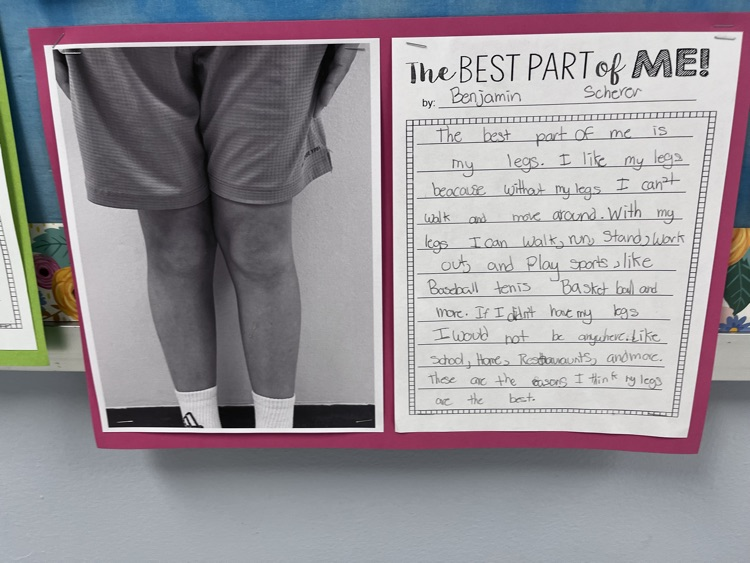 The BEST PART of ME!
by: Benjamin Scherer
The best part of me is
my legs. I like my legs
beacause without my legs I can't
walk and move around. With my
legs I can walk, run, stand, work
out, and Play sports, like
Baseball tenis Basket ball and
more. If I didn't have my legs
I would not be anywhere. Like
school, Home, and more.
These are the I think my legs
are the best.